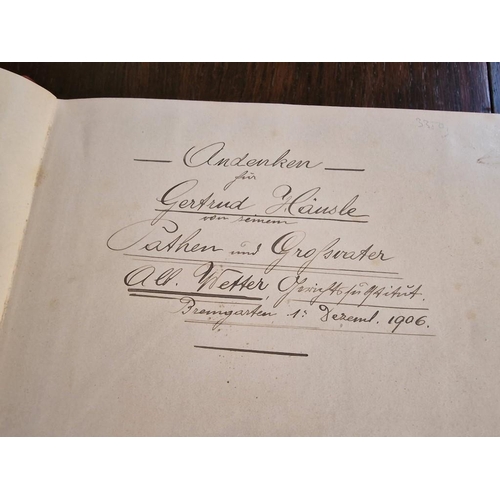 — Andenken —
für
Gertrud Häusle
von seinem
Pathen und Grossvater
Alb. Wetter, Gerichtssubstitut.
Bremgarten 1: Dezemb. 1906.